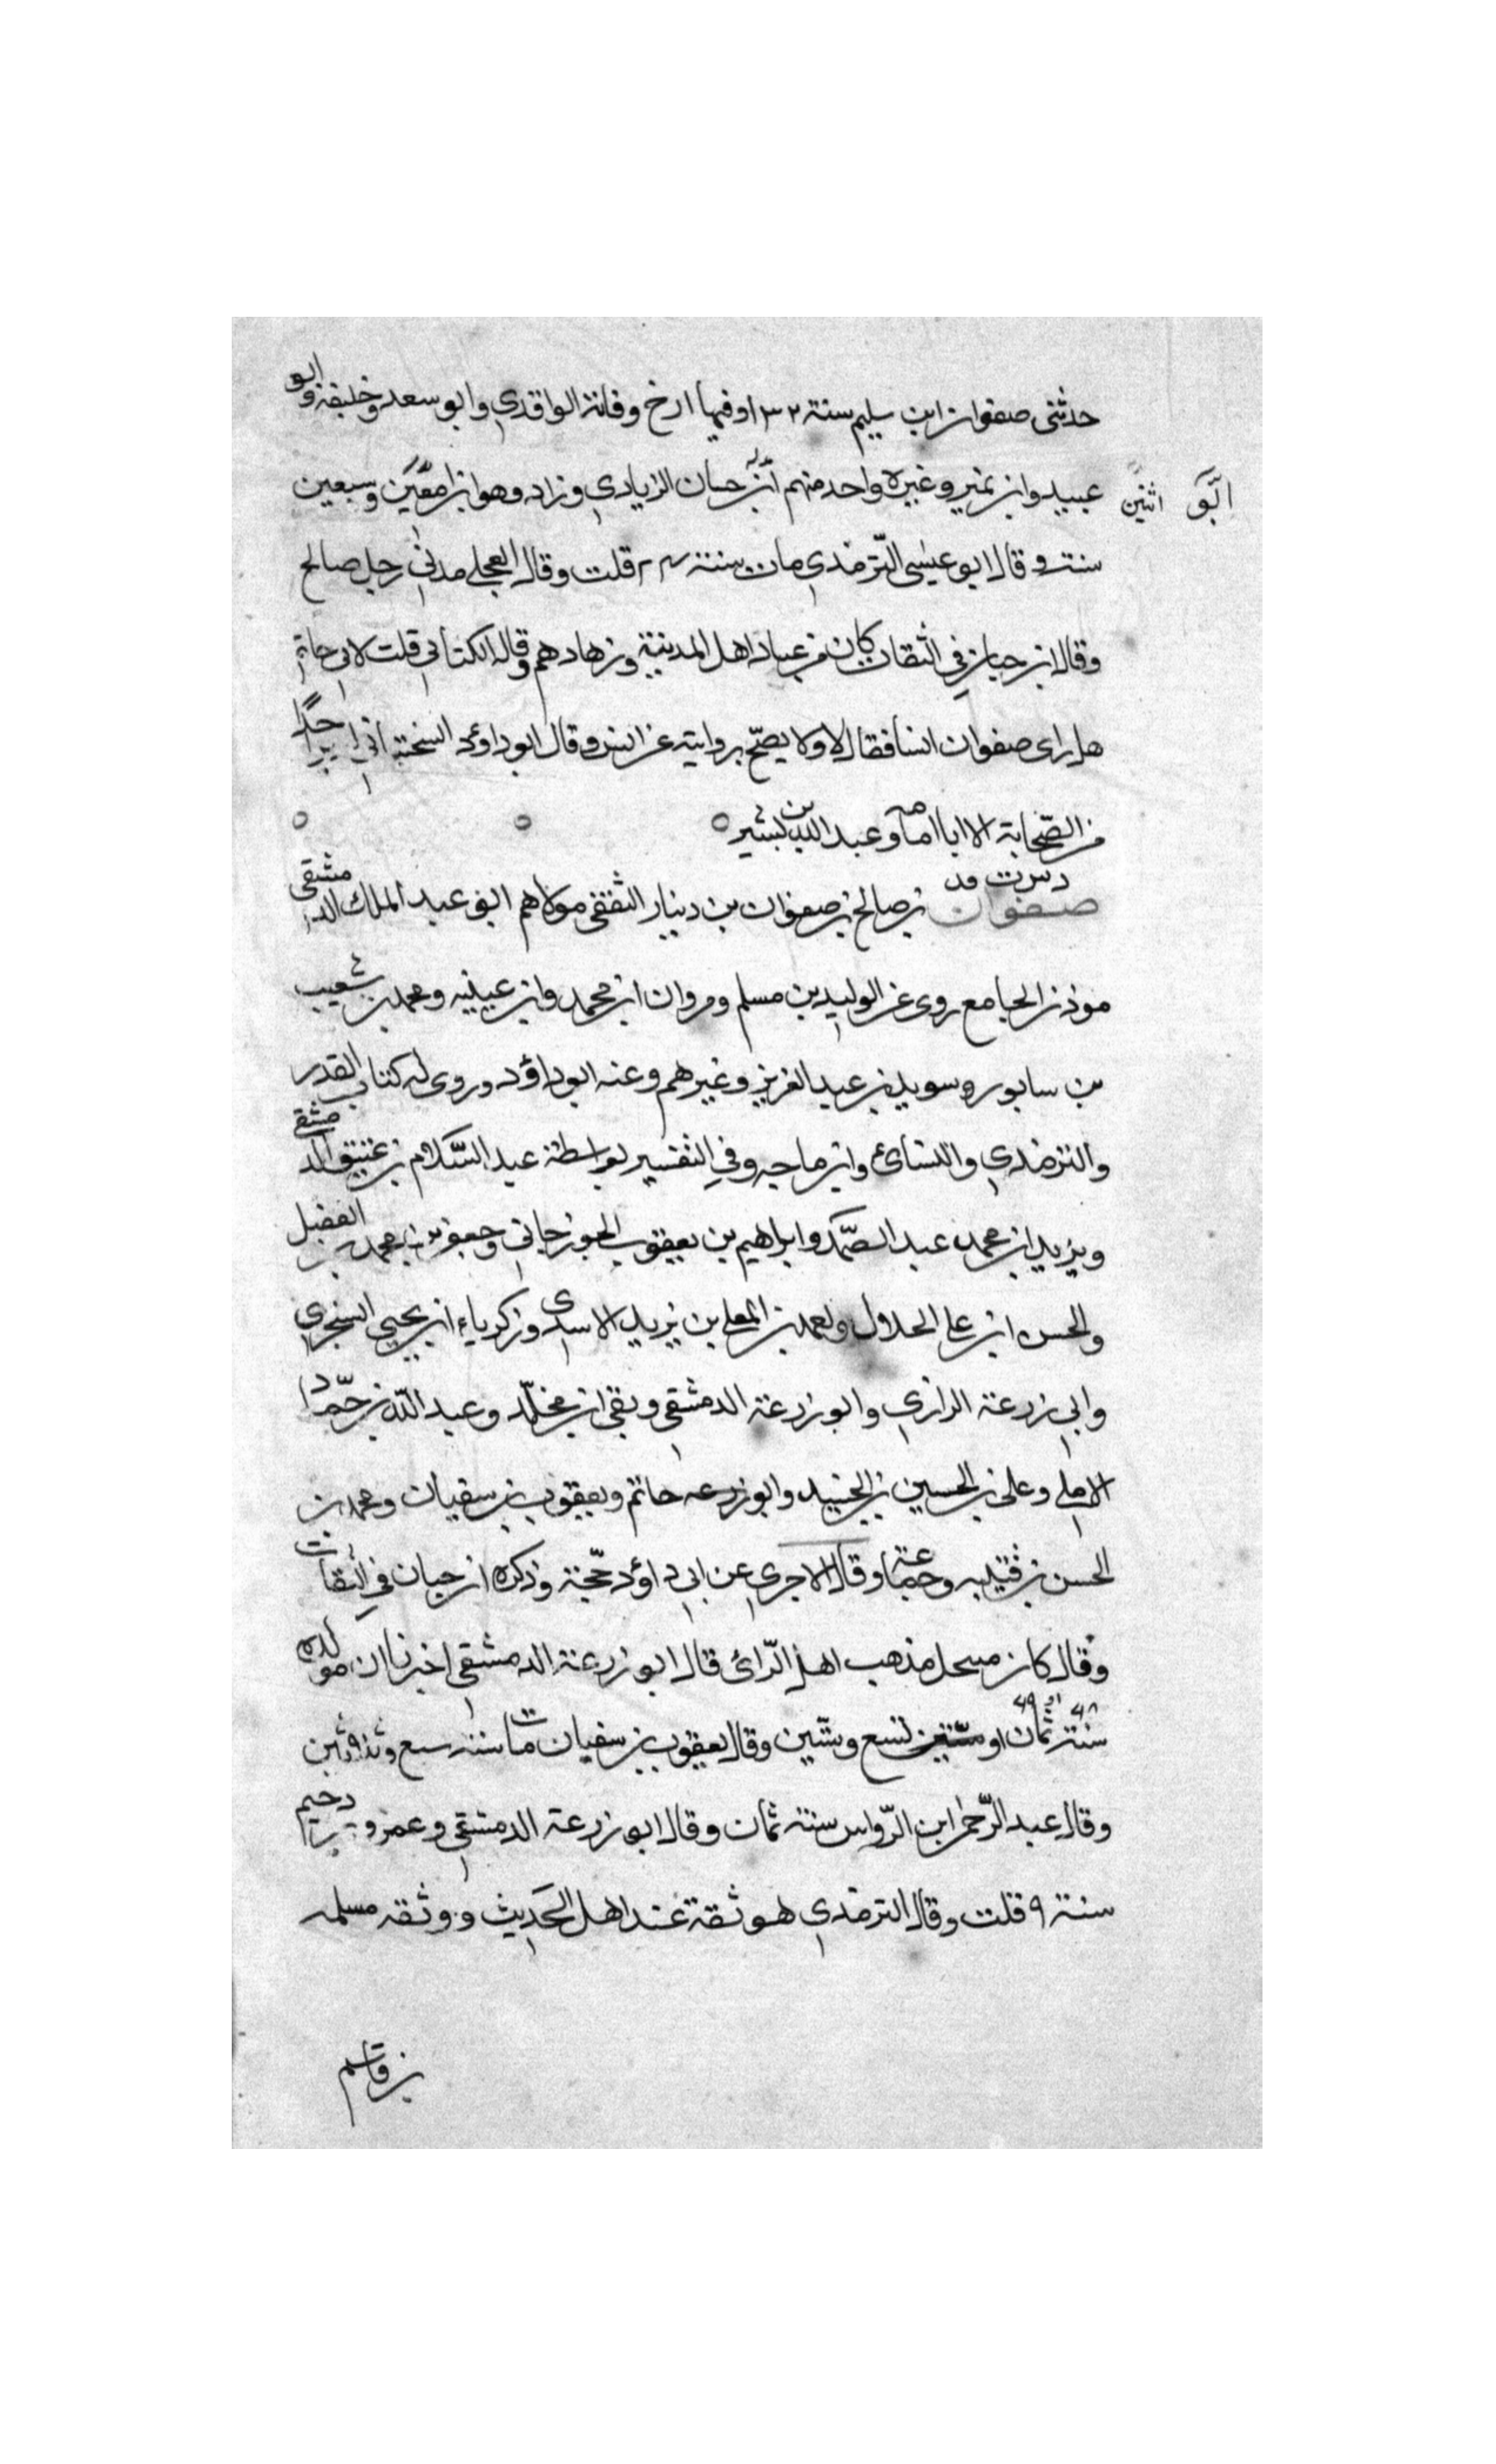 حدثنی صفوان ابن سلیم سنة ۱۳۲ وفیها ارخ وفاتة الواقدی وابو سعد وخلیفة وابو
عبید وابن نمیر وغیره واحد منهم حسان الزیادی وزاد وهو ابن وسبعین
ابو اثنین
سنة وقال ابو عیسی الترمذی مات سنة قلت وقال العجلے مدنی رجل صالح
وقال ابن حبان فی الثقات کان من عباد اهل المدینة وزهادهم وقال الکتانی قلت لابی حاتم
هل رای صفوان انسا فقال لا ولا یصح روایته عن انس وقال ابوداؤد احدًا
من الصحابة الا ابا امامة وعبد الله بن بشیر
دس ت فد
صفوان بن صالح بن صفوان بن دینار الثقفی مولاهم ابو عبد الملک الدمشقی
موذن الجامع روی عن الولید بن مسلم ومروان ابن محمد وابن عیینه ومحمد بن شعیب
بن سابور وسوید بن عبد العزیز وغیرهم وعنه ابوداؤد وروی له کتاب القدر
والترمذی والنسائ وابن ماجه وفی التفسیر بواسطة عبد السلام بن عتیق الدمشقے
ویزید ابن محمد عبد الصمد وابراهیم بن یعقوب الجوزجانی وجعفر بن محمد بن الفضیل
والحسن ابن علی الحلال ومحمد بن المعلے بن یزید الاسدی وزکریاء ابن یحیی السنجری
وابی زرعة الرازی وابو زرعة الدمشقی وبقی ابن مخلد وعبد الله بن حماد
الاملی وعلی بن الحسین بن الجنید وابو زرعه حاتم ویعقوب بن سفیان ومحمد بن
الحسن بن قتیبه وجماعة وقال الاجری عن ابی داؤد حجة وذکره ابن حبان فی الثقات
وقال کان منتحل مذهب اهل الرائ قال ابو زرعة الدمشقی اخبرنا ان مولده
سنة ثمان او تسع وستین وقال یعقوب بن سفیان مات سنة سبع وثلاثین
۶۸ او ۶۹
وقال عبد الرحمن ابن الرواس سنة ثمان وقال ابو زرعة الدمشقی وعمرو دحیم
سنة ۹ قلت وقال الترمذی هو ثقة عند اهل الحدیث ووثقه مسلمه
بن قاسم